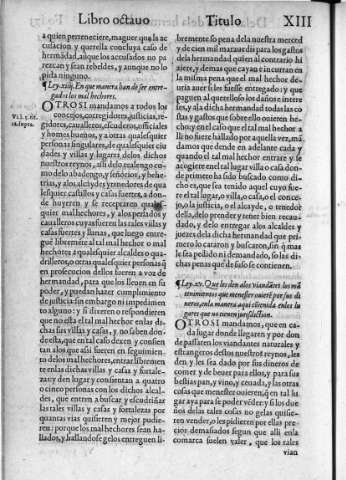 Libro octauo Titulo XIII
a quien perteneciere, maguer que la ac
cusacion y querella concluya caso de
hermãdad, aũque los accusados no pa
rezcan y seãn rebeldes, y aunque no lo
pida ninguno.
¶ Ley .xiiij. En que manera han de ser entre
gados los mal hechores.
OTROSI mandamos a todos los
concejos, corregidores, justicias, re
gidores, caualleros, escuderos, officiales
y homes buenos, y a otras qualesquier
personas singulares, de qualesquier ciu
dades y villas y lugares, delos dichos
nuestros reynos, assi delo realengo co-
mo delo abadengo, y señorios, y behe-
trias, y alos alcaydes y tenedores de qua
lesquier castillos y casas fuertes, a don-
de huyeren y se receptaren quales
quier mal hechores, y alos perlados y
caualleros cuyas fueren las tales villas y
casas fuertes y llanas, que luego entre-
gué libremẽte al tal mal hechor o mal
hechores a qualesquier alcaldes o qua-
drilleros, o otras qualesquier personas q̃
en prosecucion dellos fueren a voz de
hermandad, para que los lleuen en su
poder, y puedan hazer cumplimiento
de justicia: sin embargo ni impedimen
to alguno: y si dixeren o respondieren
que no esta el tal mal hechor enlas di-
chas sus villas y casas, y no saben don-
de esta, que en tal caso dexen y consien
tan alos que assi fueren en seguimien-
to delos mal hechores, entrar libremen
te enlas dichas villas y casas y fortale-
zas: y den lugar y consientan a quatro
o cinco personas con los dichos alcal-
des, que entren a buscar y escudriñar
las tales villas y casas y fortalezas por
quantas vias quisieren y mejor pudie-
ren: porque los mal hechores sean ha-
llados, y hallandose gelos entreguen li-
bremente so pena dela nuestra merced
y de cien mil marauedis para los gastos
dela hermandad quien al contrario hi
ziere, y demas que cayan e incurran en
la misma pena que el mal hechor de-
uria auer si les fuesse entregado: y que
paguen al querelloso los daños e intere
ses, y ala dicha hermandad todas las co
stas y gastos que sobre ello ouieren he-
cho: y en el caso que el tal mal hechor a
lli no fuere hallado por aquella vez, mã
damos que dende en adelante cada y
quando el tal mal hechor entrare y se
acogiere en el tal lugar villa o casa don-
de primero ha sido buscado como di-
cho es, que sea tenido aquel cuyo fue-
re el tal lugar, o villa, o casa, o el conce-
jo, o la justicia, o el alcayde, o tenedor
della, delo prender y tener bien recau-
dado, y delo entregar alos alcaldes y
juezes dela dicha hermandad que pri-
mero lo cataron y buscaron, sin q̃ mas
le sea pedido ni demandado, so las di-
chas penas que de suso se contienen.
¶ Ley .xv. Que les den alos viandantes los mã
tenimientos que menester ouierẽ por sus di-
neros, enla manera aqui cõtenida enlos lu
gares que no tienen jurisdiction.
OTROSI mandamos, que en ca-
da lugar donde llegaren y por don
de passaren los viandantes naturales y
estrangeros destos nuestros reynos, les
den y les sea dado por sus dineros de
comer y de beuer para ellos, y para sus
bestias pan, y vino, y ceuada, y las otras
cosas que menester ouieren, q̃ en tal lu
gar aya para se poder vẽder: y si los due
ños delas tales cosas no gelas quisie-
ren vender, o les pidieren por ellas pre-
cio demasiados segun que alli enla
comarca suelen valer, que los tales
vian